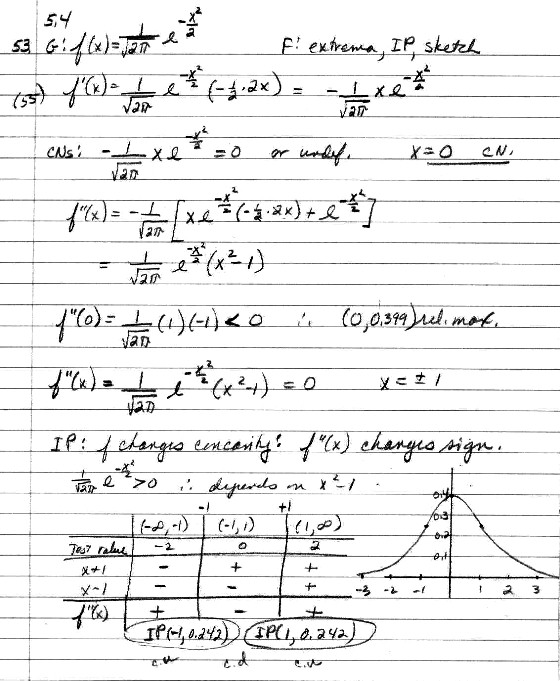 5.4
53 G: f(x) = 1/√2π e^(-x²/2) F: extrema, IP, sketch
(55) f'(x) = 1/√2π e^(-x²/2) (-½·2x) = -1/√2π x e^(-x²/2)
CNs: -1/√2π x e^(-x²/2) = 0 or undef. x = 0 CN.
f''(x) = -1/√2π [x e^(-x²/2) (-½·2x) + e^(-x²/2)]
= 1/√2π e^(-x²/2) (x²-1)
f''(0) = 1/√2π (1)(-1) < 0 ∴ (0, 0.399) rel. max.
f''(x) = 1/√2π e^(-x²/2) (x²-1) = 0 x = ±1
IP: f changes concavity: f''(x) changes sign.
1/√2π e^(-x²/2) > 0 ∴ depends on x²-1.
-1 +1
(-∞, -1) (-1, 1) (1, ∞)
Test value -2 0 2
x+1 - + +
x-1 - - +
f''(x) + - +
IP(-1, 0.242) IP(1, 0.242)
c.u c.d c.u
0.4
0.3
0.2
0.1
-3 -2 -1 1 2 3